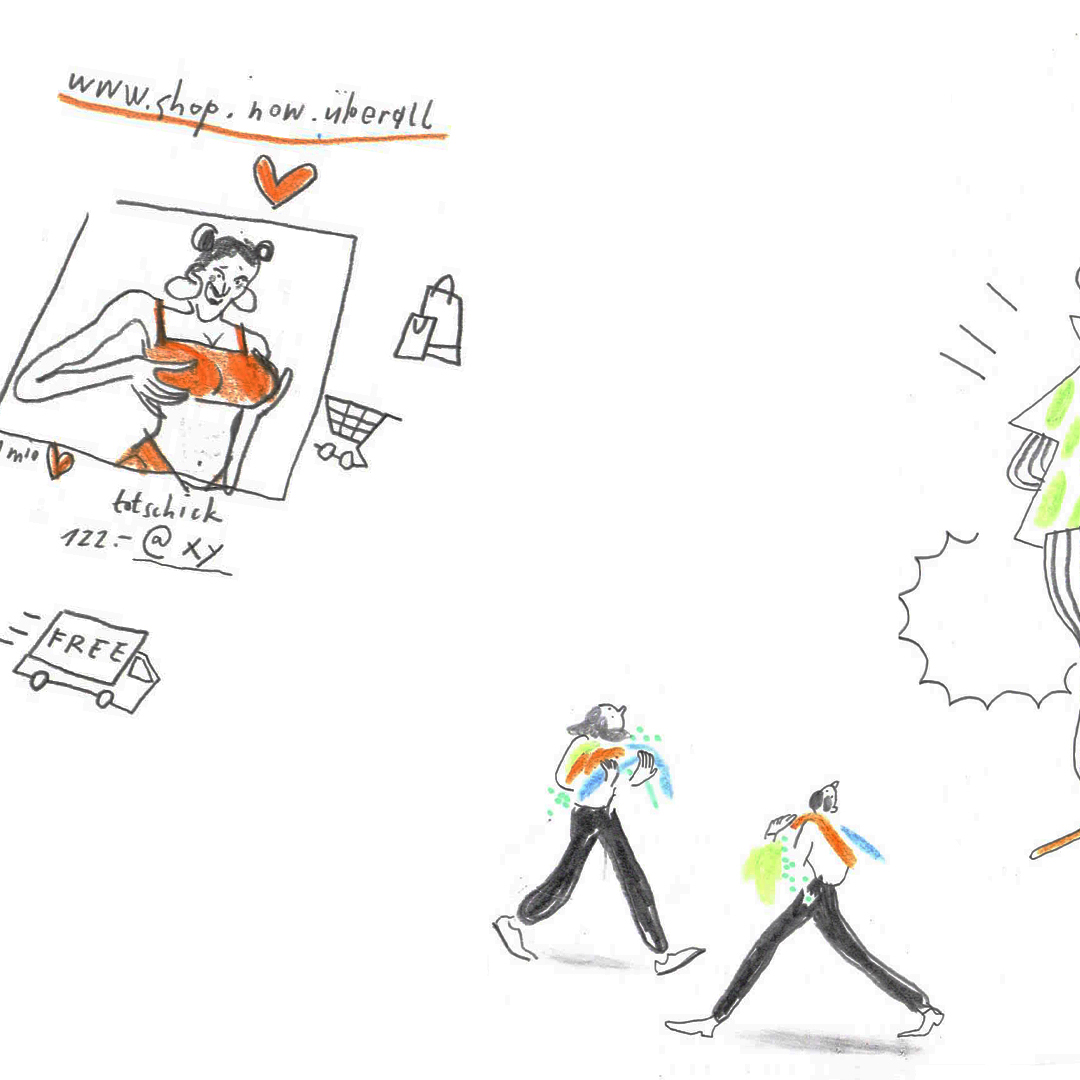 www.shop.now.überall
1 mio
totschick
122.- @ xy
FREE